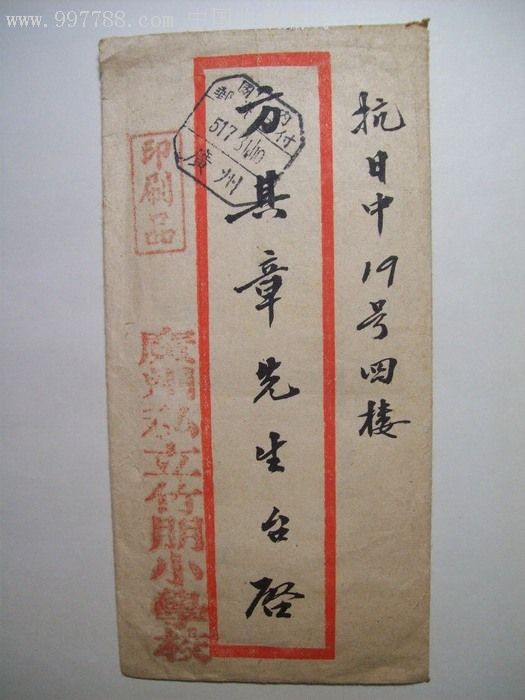 www.997788.com 中国
抗日中19号四楼
方其章先生台启
国内
邮资
已付
517
广州
印刷品
廣州私立竹朋小學校